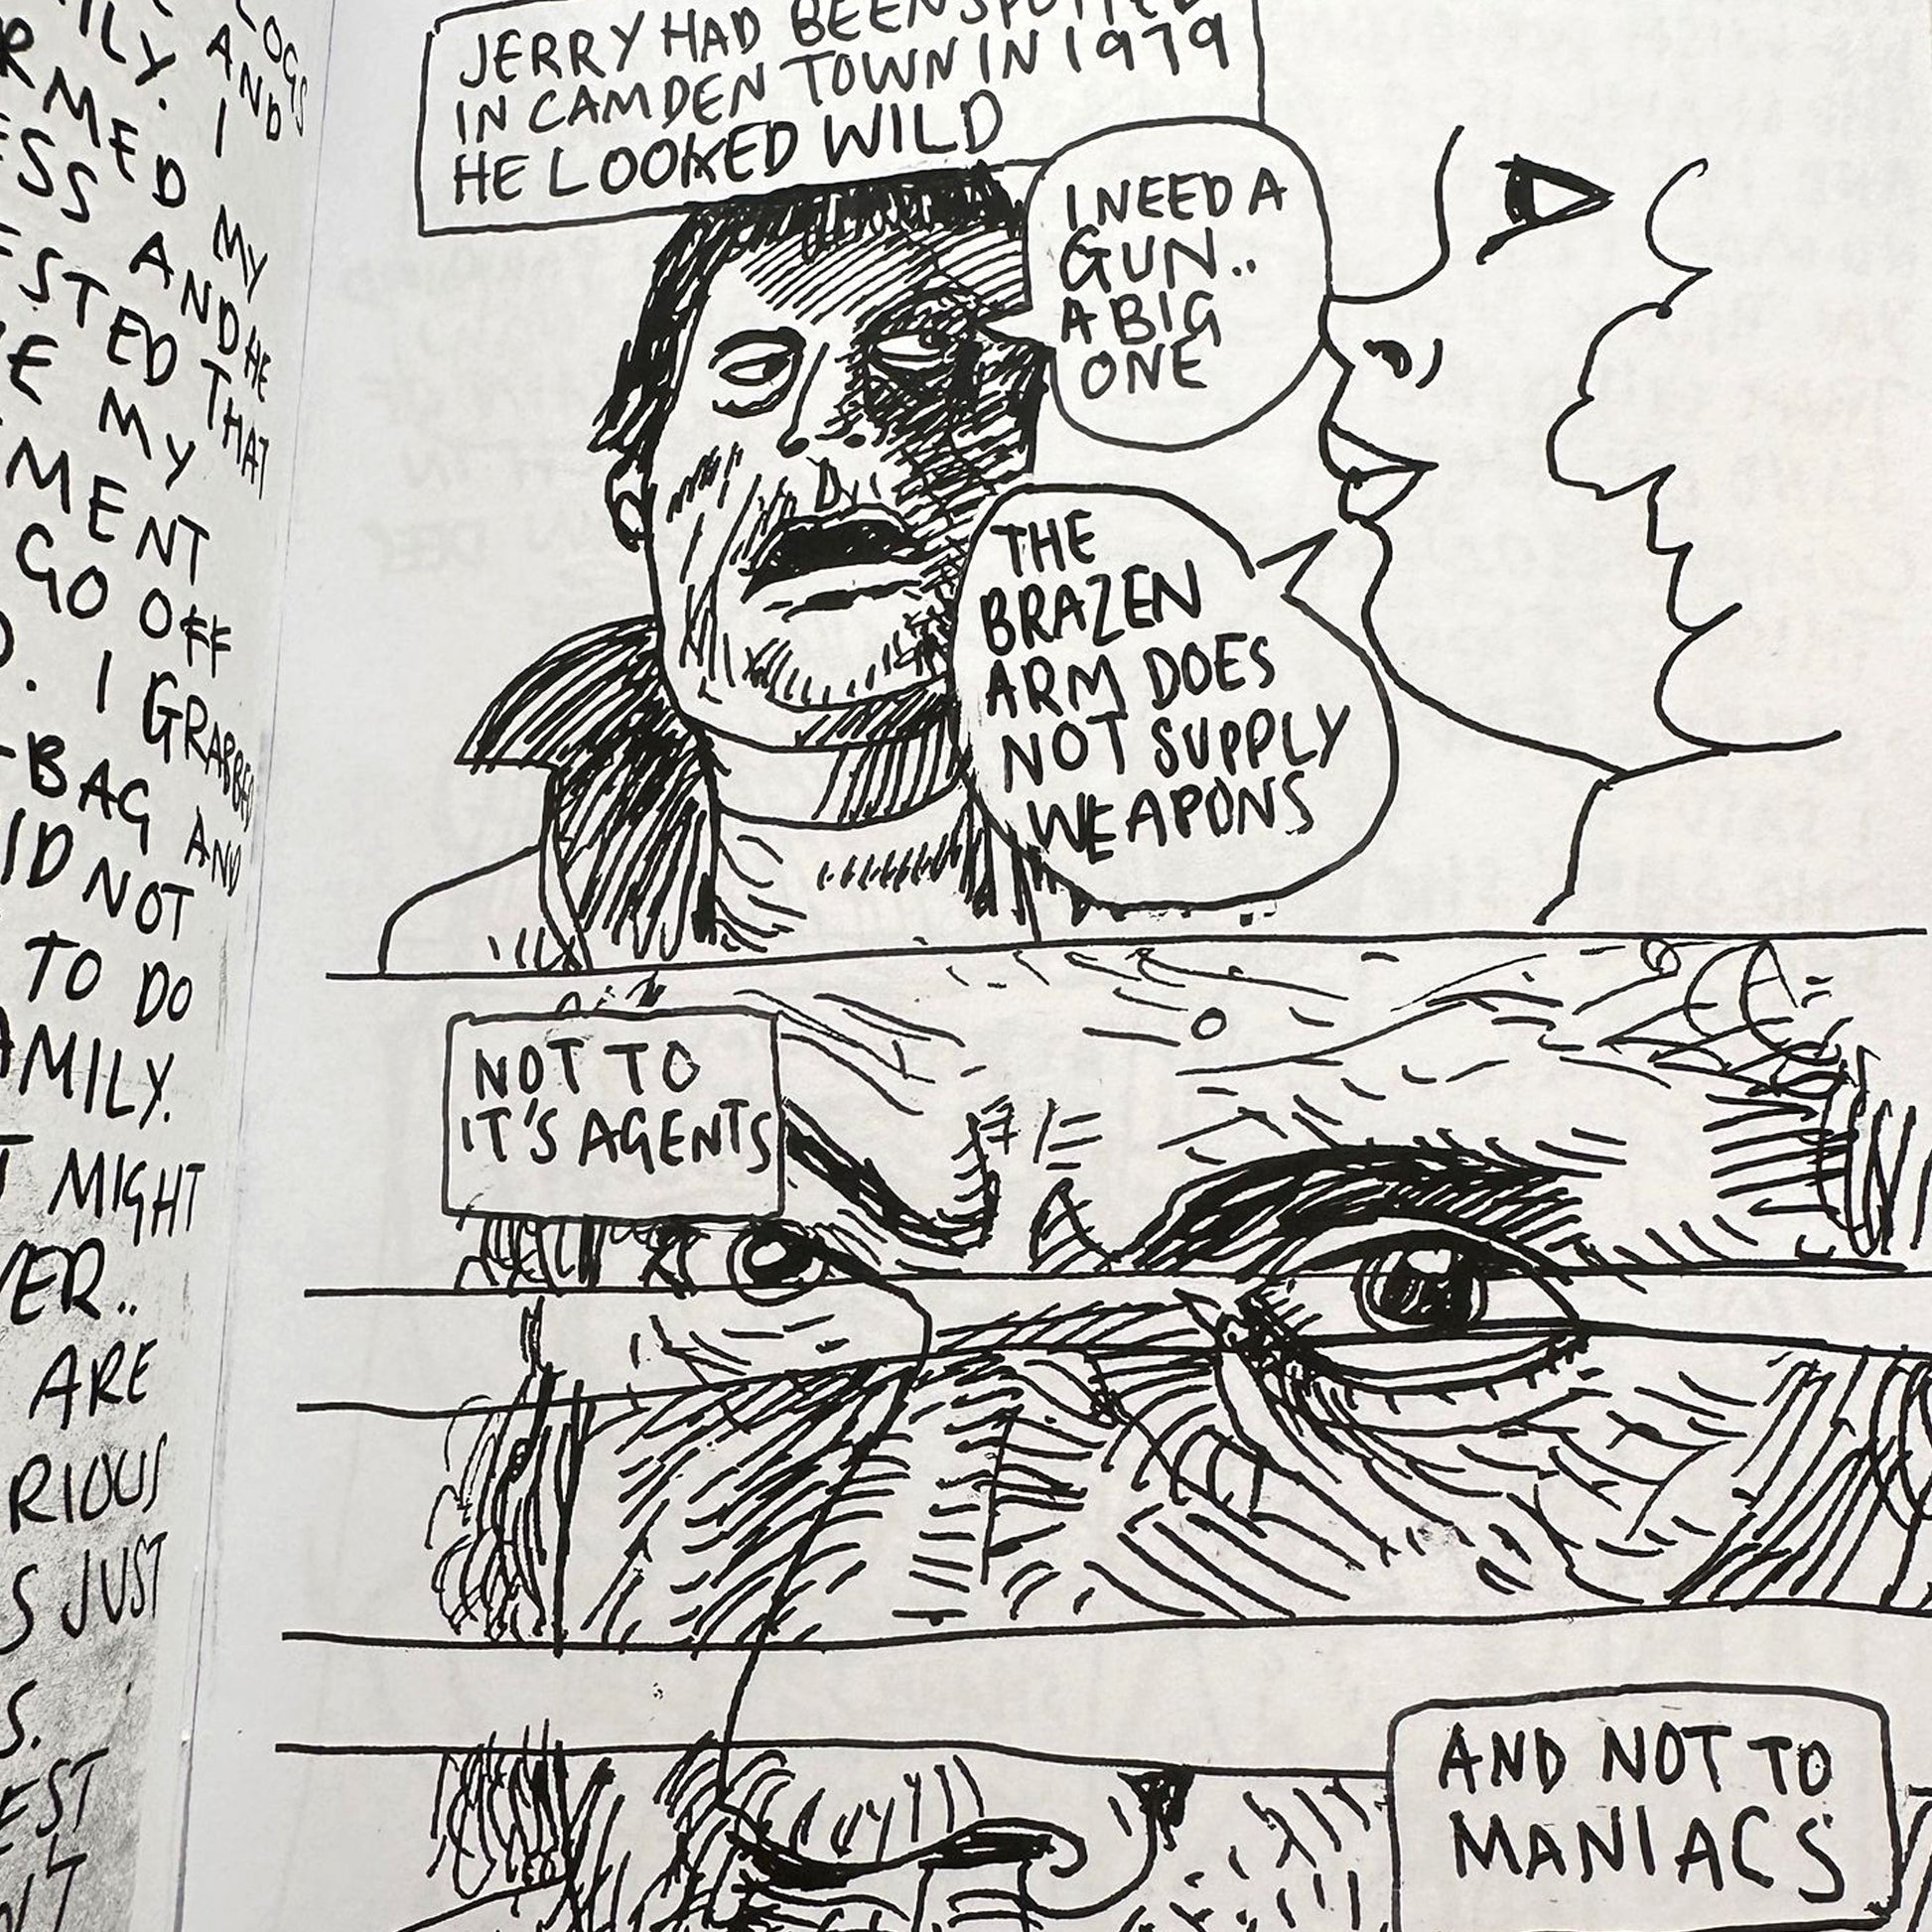 LOGS
ILY. AND
RMED I
ESS AND MY
ESTED HE
E MY THAT
MENT OFF
GO I GRABBED
BAG AND
ID NOT
TO DO
AMILY.
MIGHT
VER..
ARE
RIOUS
S JUST
S.
EST
NT
JERRY HAD BEEN SPOTTED
IN CAMDEN TOWN IN 1979
HE LOOKED WILD
I NEED A
GUN..
A BIG
ONE
THE
BRAZEN
ARM DOES
NOT SUPPLY
WEAPONS
NOT TO
IT'S AGENTS
AND NOT TO
MANIACS